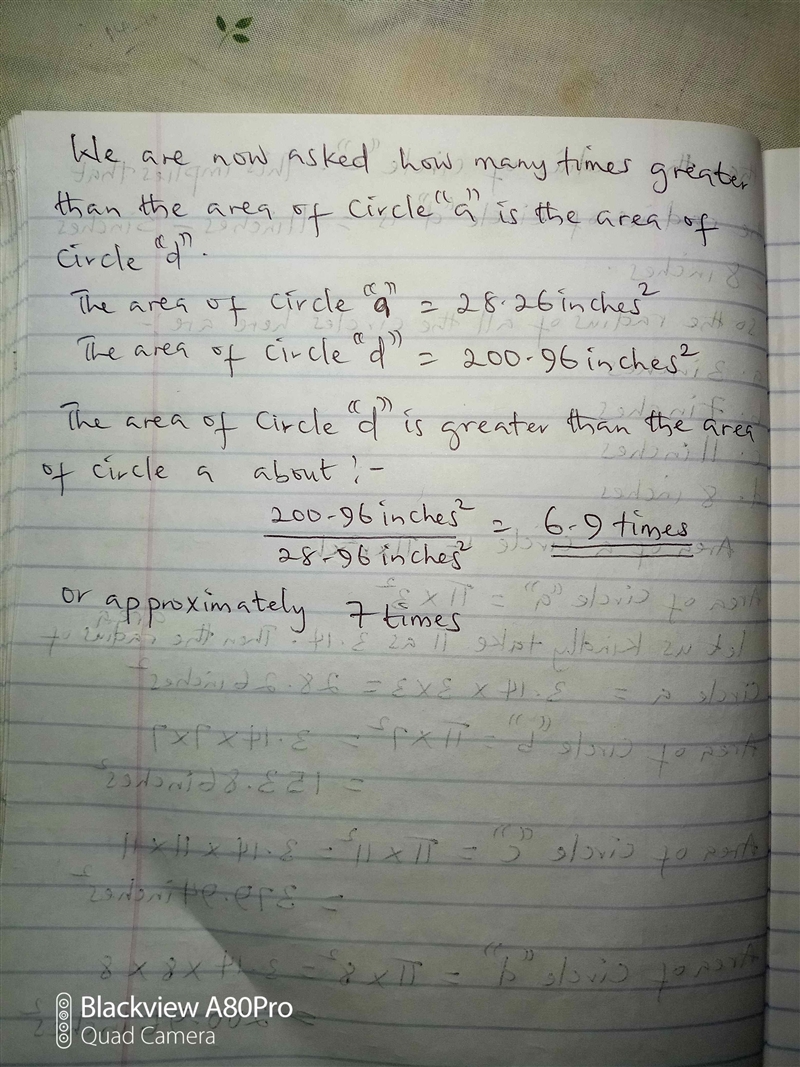 We are now asked how many times greater
than the area of Circle "a" is the area of
Circle "d".
The area of circle "a" = 28.26 inches²
The area of circle "d" = 200.96 inches²
The area of Circle "d" is greater than the area
of circle a about :-
200.96 inches² / 28.96 inches² = 6.9 times
or approximately 7 times
Blackview A80Pro
Quad Camera